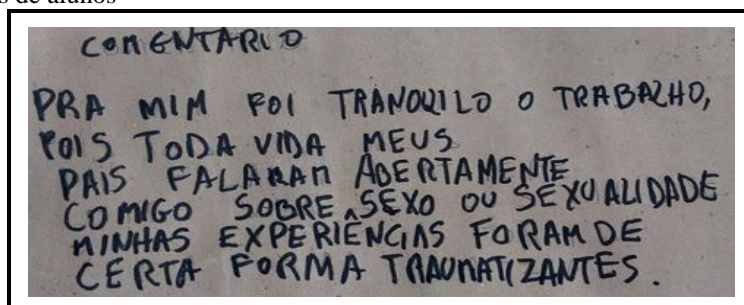 s de alunos
COMENTARIO
PRA MIM FOI TRANQUILO O TRABALHO,
POIS TODA VIDA MEUS
PAIS FALARAM ABERTAMENTE
COMIGO SOBRE SEXO OU SEXUALIDADE
MINHAS EXPERIÊNCIAS FORAM DE
CERTA FORMA TRAUMATIZANTES.